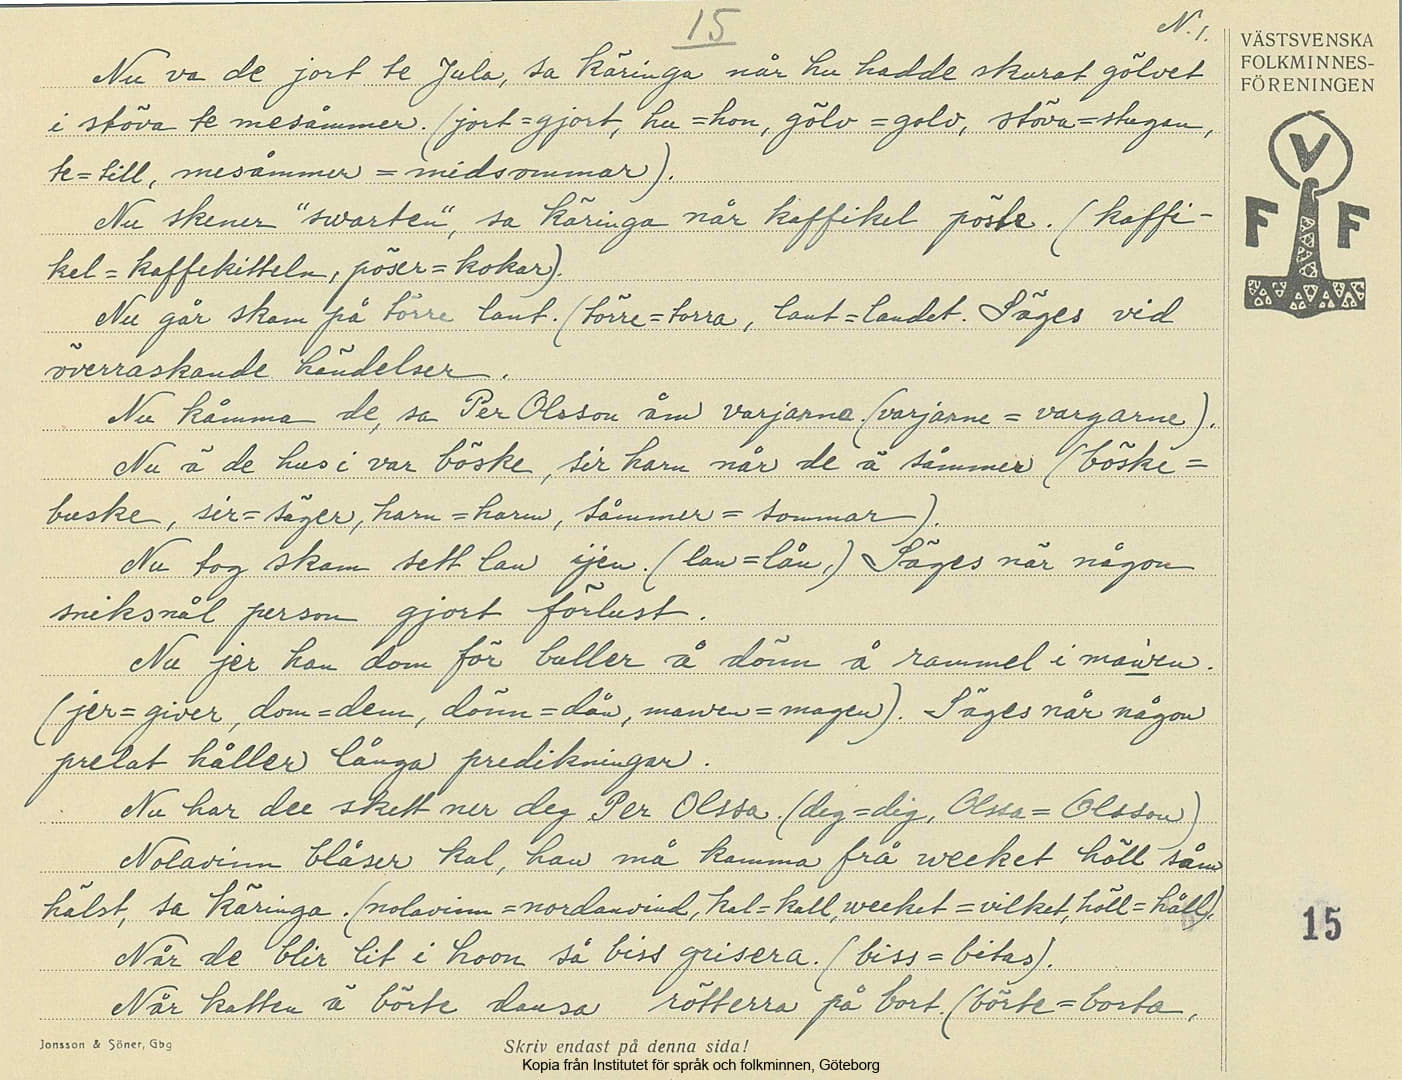 15
N. 1.
VÄSTSVENSKA
FOLKMINNES-
FÖRENINGEN
V
F F
Nu va de jort te Jula, sa käringa når hu hadde skurat gölvet
i stöva te mesåmmer. (jort=gjort, hu=hon, gölv=golv, stöva=stugan,
te=till, mesåmmer = midsommar).
Nu skener "swarten", sa käringa når kaffikel pöste. (kaffi-
kel = kaffekitteln, pöser=kokar).
Nu går skam på törre lant. (törre=torra, lant=landet. Säges vid
överraskande händelser.
Nu kåmma de, sa Per Olsson åm varjarne. (varjarne = vargarne).
Nu ä de hus i var böske, sir harn når de ä såmmer (böske =
buske, sir=säger, harn=haren, såmmer = sommar).
Nu tog skam sett lan ijen. (lan=lån.) Säges när någon
sniksnål person gjort förlust.
Nu jer han dom för buller å dönn å rammel i mawen.
(jer=giver, dom=dem, dönn=dån, mawen=magen). Säges når någon
prelat håller långa predikningar.
Nu har dee skett ner deg Per Olssa. (deg=dig, Olssa = Olsson)
Nolavinn blåser kal, han må kamma frå wecket höll såm
hälst, sa käringa. (nolavinn=nordanvind, kal=kall, wecket=vilket, höll=håll).
Når de blir lit i hoon så biss grisera. (biss=bitas).
Når katten ä börte dansa rötterra på bort. (börte=borta,
15
Jonsson & Söner, Gbg
Skriv endast på denna sida!
Kopia från Institutet för språk och folkminnen, Göteborg